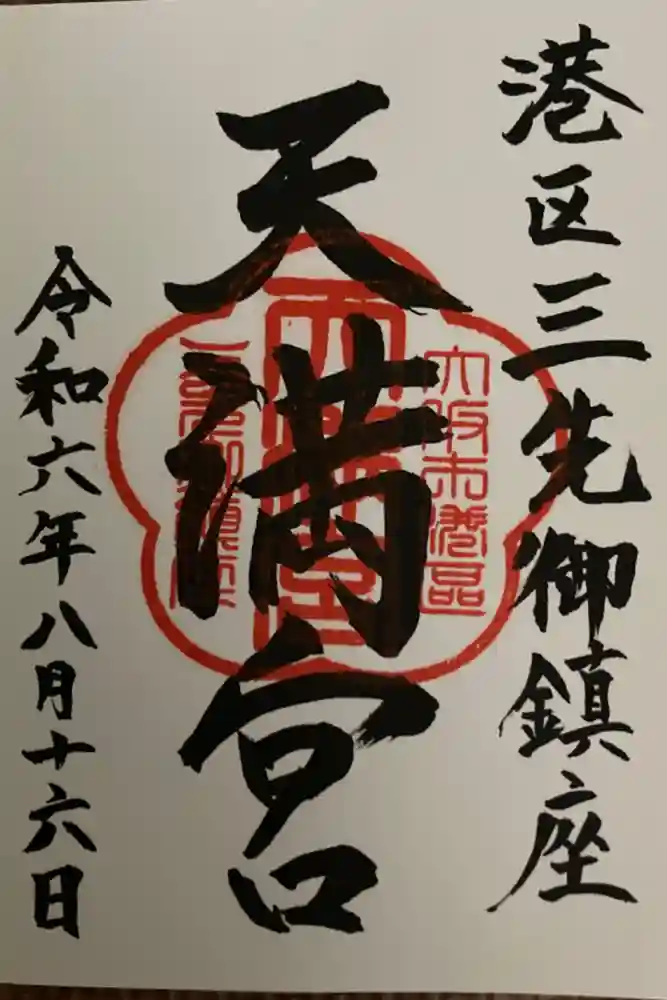 港区三先御鎮座
大阪市港区
天満宮
天満宮
三先御鎮座
令和六年八月十六日